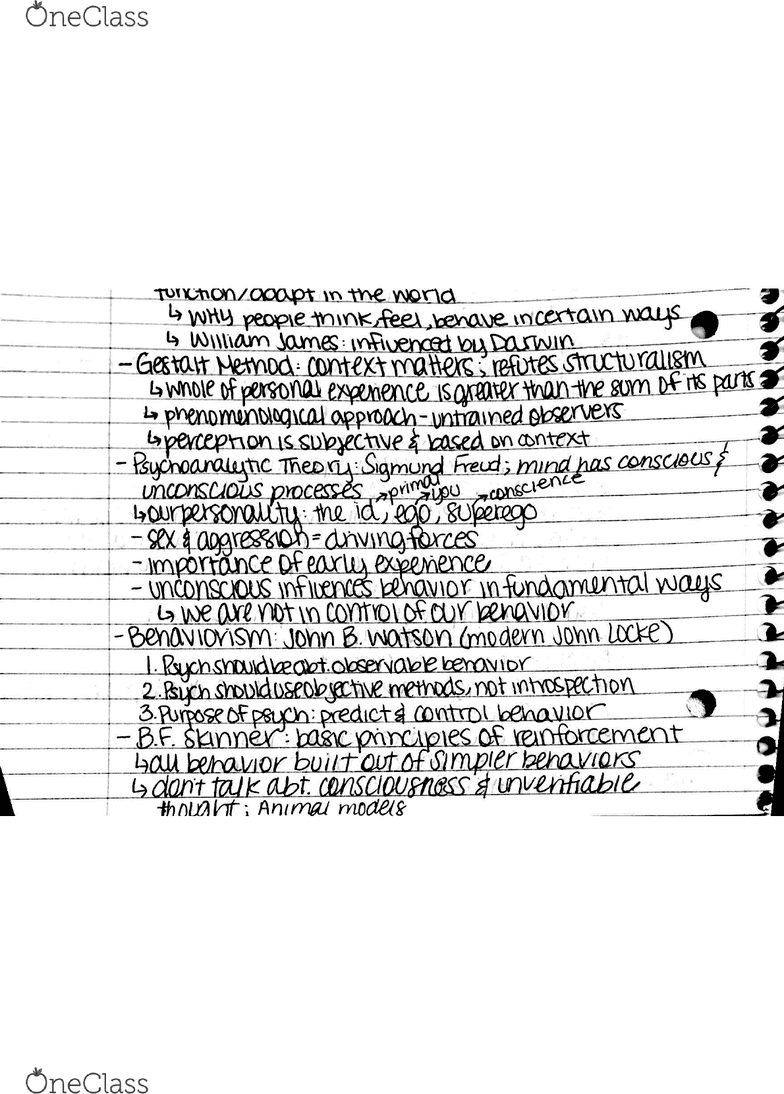 OneClass
function/adapt in the world
↳ WHY people think, feel, behave in certain ways
↳ William James: influenced by Darwin
- Gestalt Method: context matters; refutes structuralism
↳ whole of personal experience is greater than the sum of its parts
↳ phenomenological approach - untrained observers
↳ perception is subjective & based on context
- Psychoanalytic Theory: Sigmund Freud; mind has conscious &
unconscious processes →primal →you →conscience
↳ our personality: the id, ego, superego
- sex & aggression = driving forces
- importance of early experience
- unconscious influences behavior in fundamental ways
↳ we are not in control of our behavior
- Behaviorism: John B. Watson (modern John Locke)
1. Psych should be abt. observable behavior
2. Psych should use objective methods, not introspection
3. Purpose of psych: predict & control behavior
- B.F. Skinner: basic principles of reinforcement
↳ all behavior built out of simpler behaviors
↳ don't talk abt. consciousness & unverifiable
thought; Animal models
OneClass